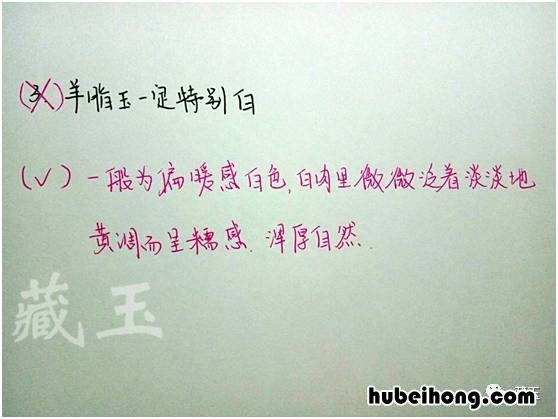 (3.)羊脂玉一定特别白
(✓)一般为偏暖感白色,白肉里微微泛着淡淡地
黄润而呈糯感.浑厚自然.
藏玉
hubeihong.com